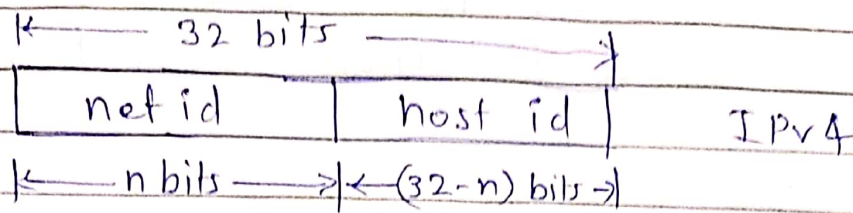 32 bits
net id host id IPv4
n bits (32-n) bits